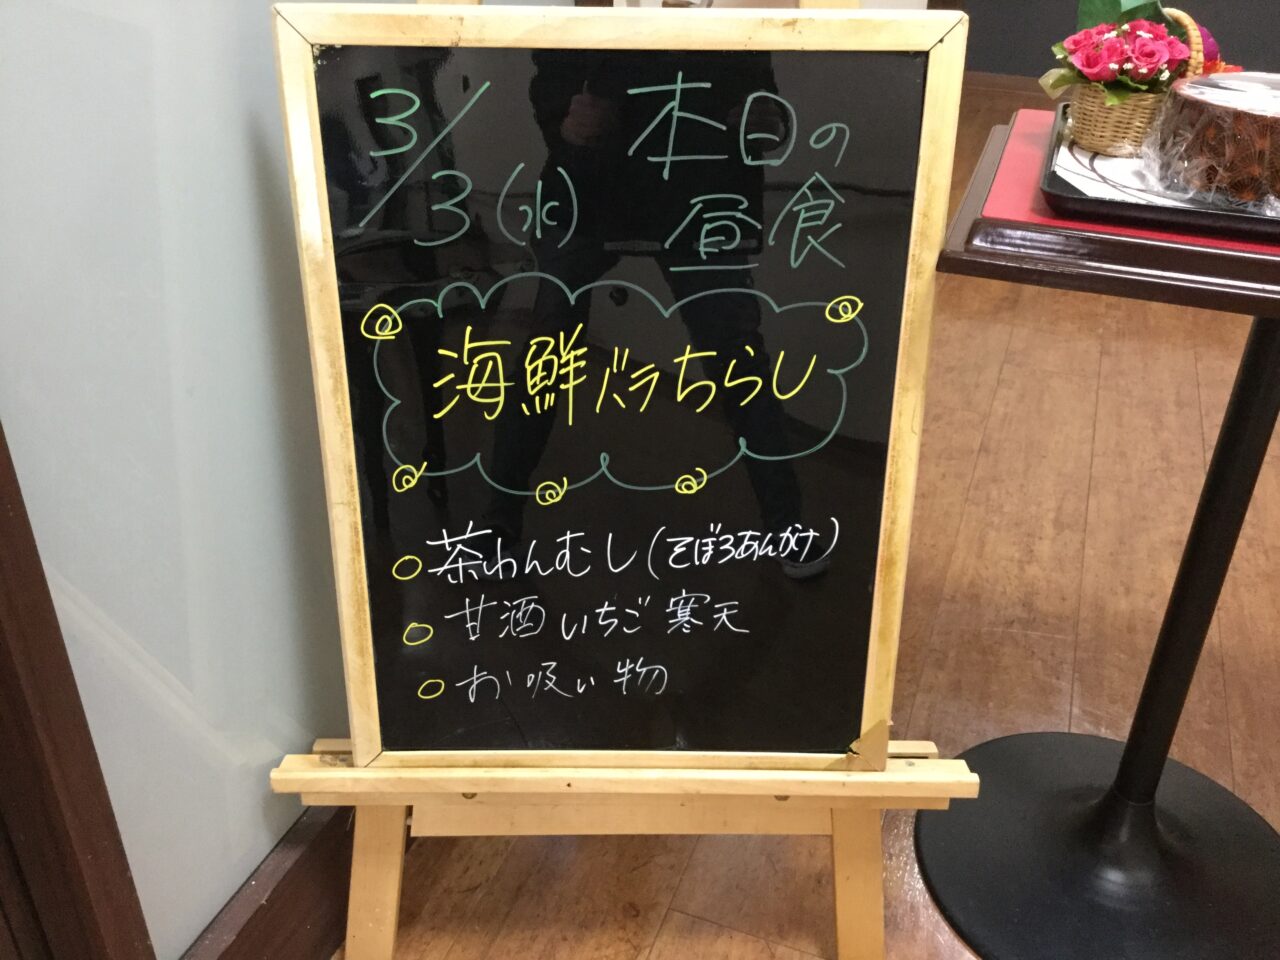 3/3(水)
本日の
昼食
海鮮バラちらし
○茶わんむし(そぼろあんかけ)
○甘酒いちご寒天
○お吸い物